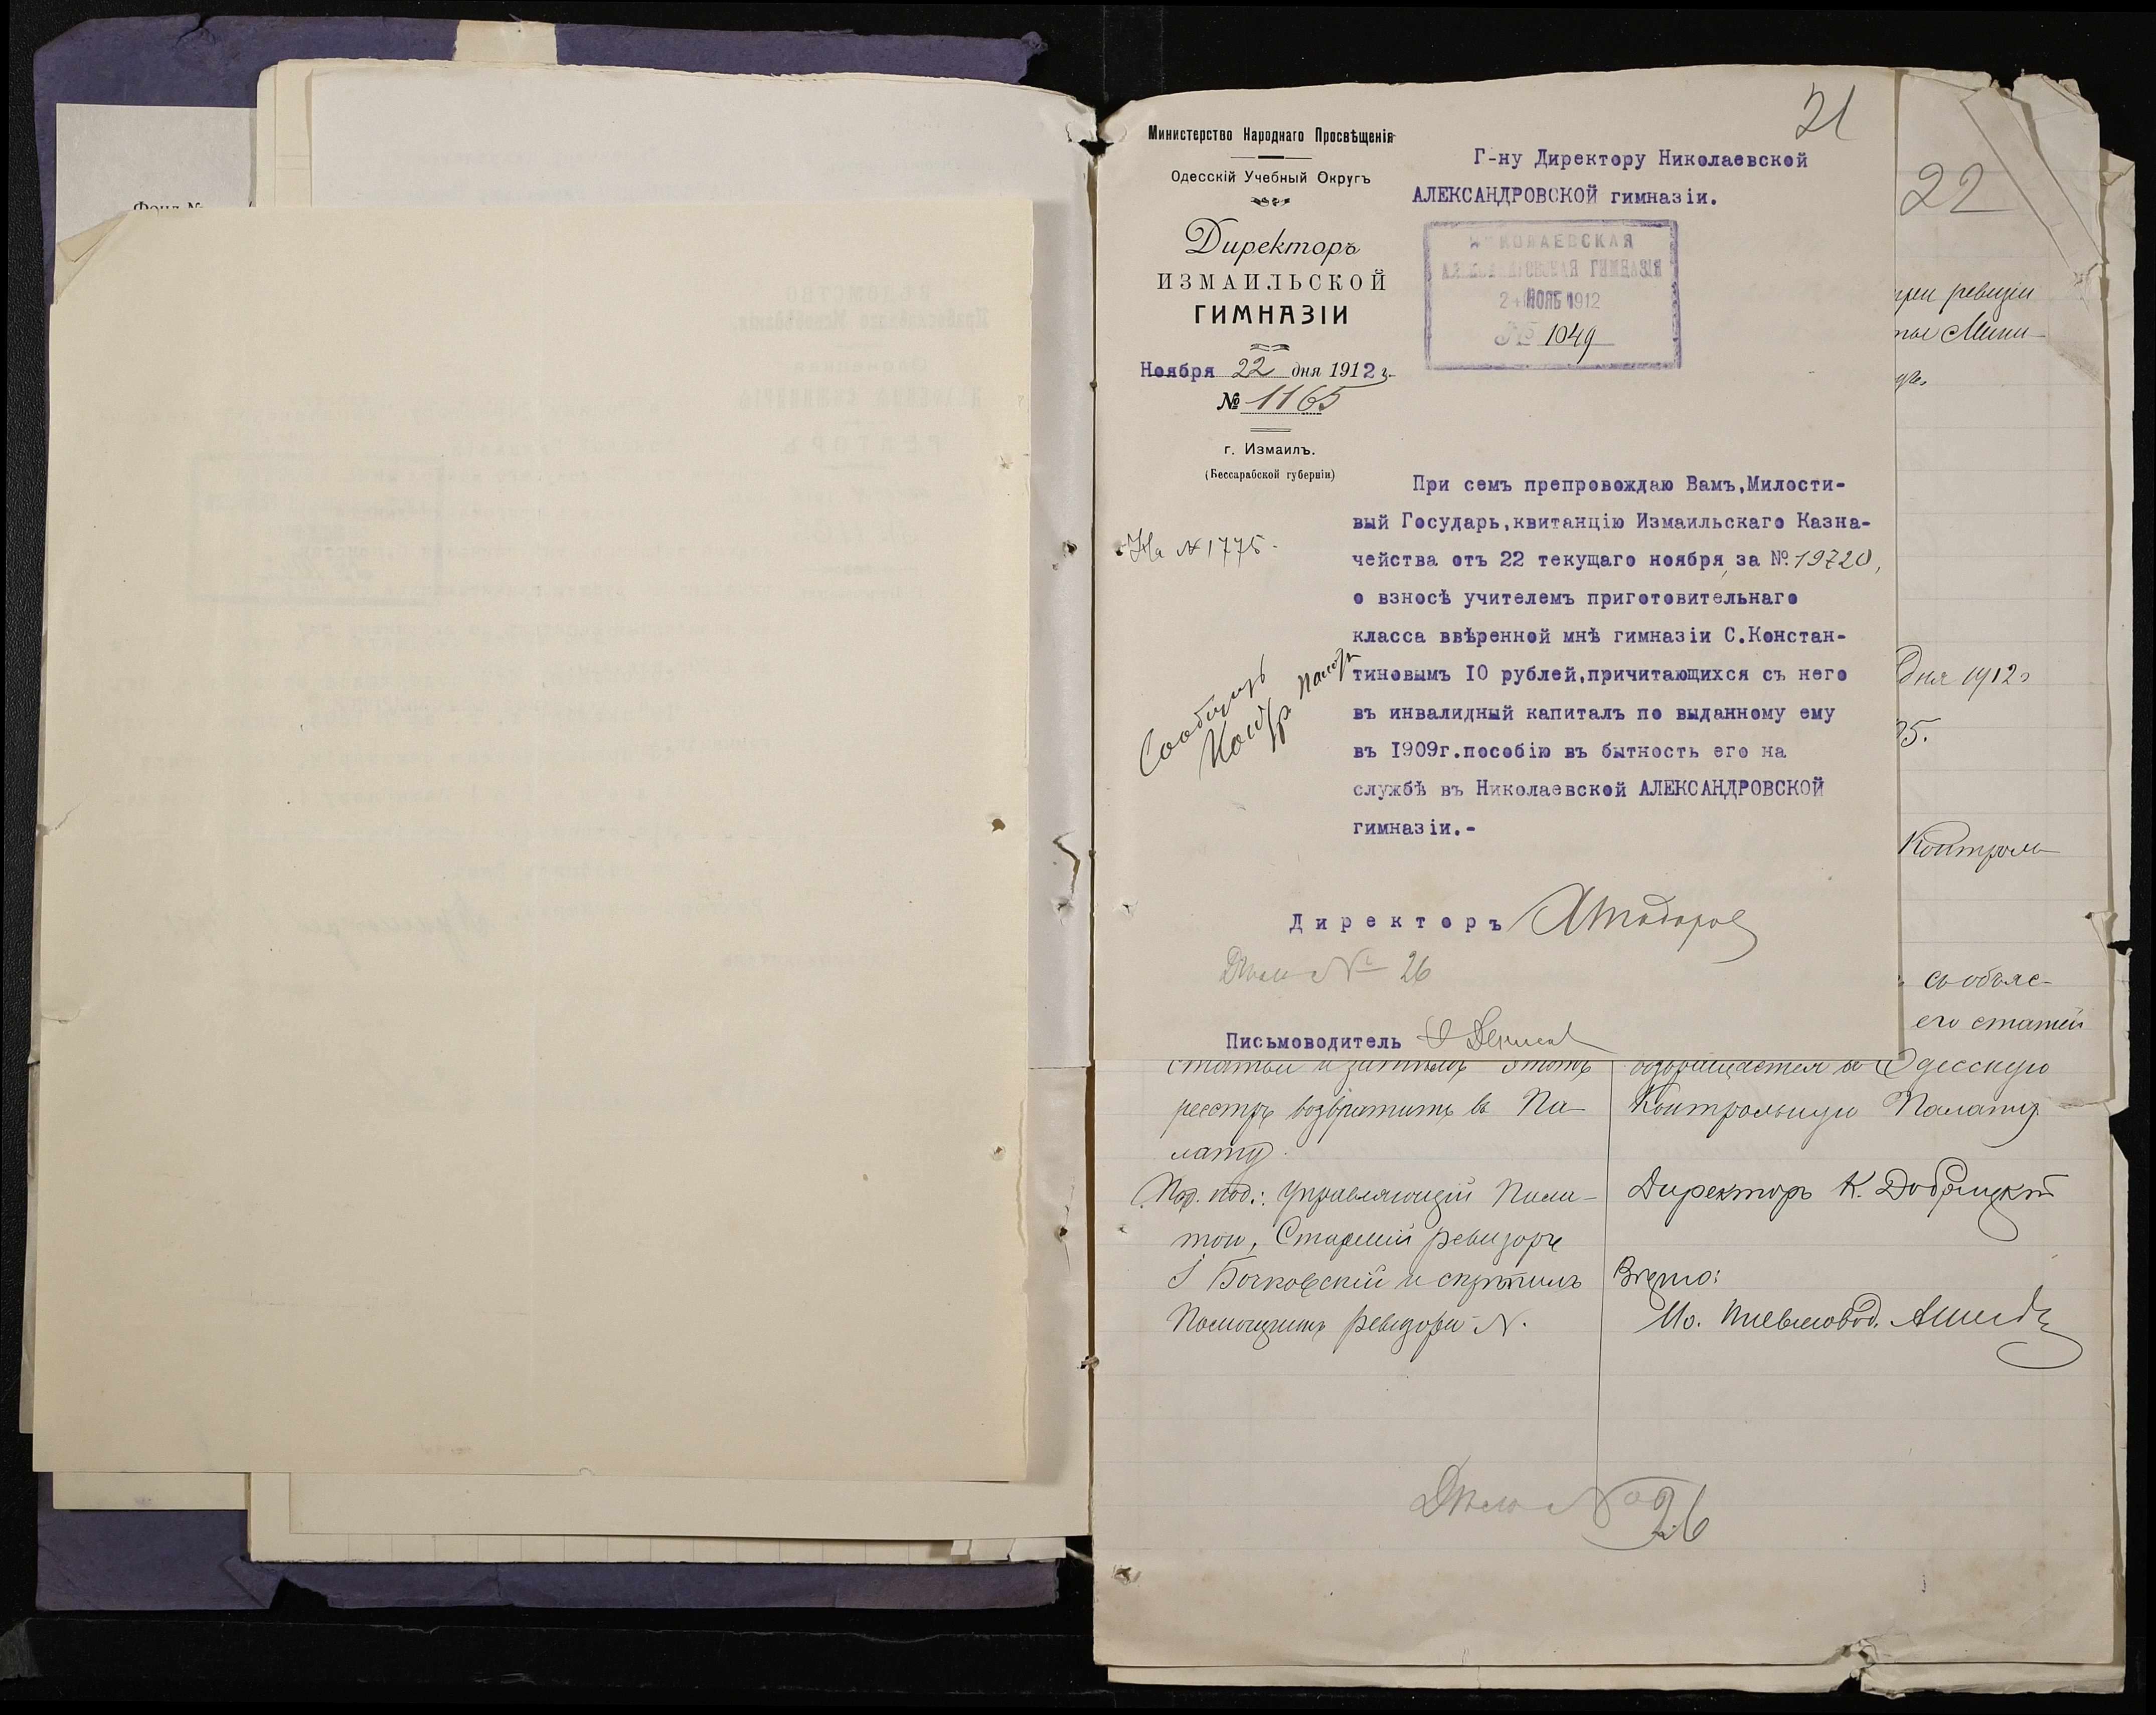 21
Министерство Народнаго Просвѣщенія
Одесскій Учебный Округъ
Директоръ
ИЗМАИЛЬСКОЙ
ГИМНАЗІИ
Ноября 22 дня 1912 г.
№ 1165
г. Измаилъ.
(Бессарабской губерніи)
На № 1775.
Г-ну Директору Николаевской
АЛЕКСАНДРОВСКОЙ гимназіи.
НИКОЛАЕВСКАЯ
АЛЕКСАНДРОВСКАЯ ГИМНАЗІЯ
НОЯБ 1912
№ 1049
При семъ препровождаю Вамъ,Милости-
вый Государь,квитанцію Измаильскаго Казна-
чейства отъ 22 текущаго ноября, за № 19720,
о взносѣ учителемъ приготовительнаго
класса ввѣренной мнѣ гимназіи С.Констан-
тиновымъ IO рублей,причитающихся съ него
въ инвалидный капиталъ по выданному ему
въ I909г.пособію въ бытность его на
службѣ въ Николаевской АЛЕКСАНДРОВСКОЙ
гимназіи.-
Сообщить
Директоръ
Дѣло № 26
Письмоводитель
22
при ревизіи
дня 1912 г
35.
Контроль
съ объяс-
его статей
статьи и затѣмъ этотъ
реестръ возвратить въ Па-
лату.
Под. под.: Управляющій Пала-
той, Старшій ревизоръ
І Бочковскій и скрѣпилъ
Помощникъ ревизора N.
возвращается въ Одесскую
Контрольную Палату.
Директоръ К. Добрицкій
Вѣрно:
Ио. Письмовод.
Дѣло № 26
Фонд №